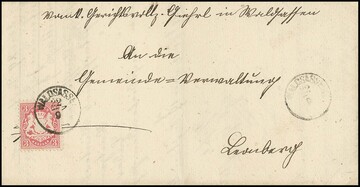 Vom k. Gerichtsvollz. Giehrl in Waldsassen
An die
Gemeinde=Verwaltung
Leonberg
WALDSASSEN
22
9
WALDSASSEN
22
9